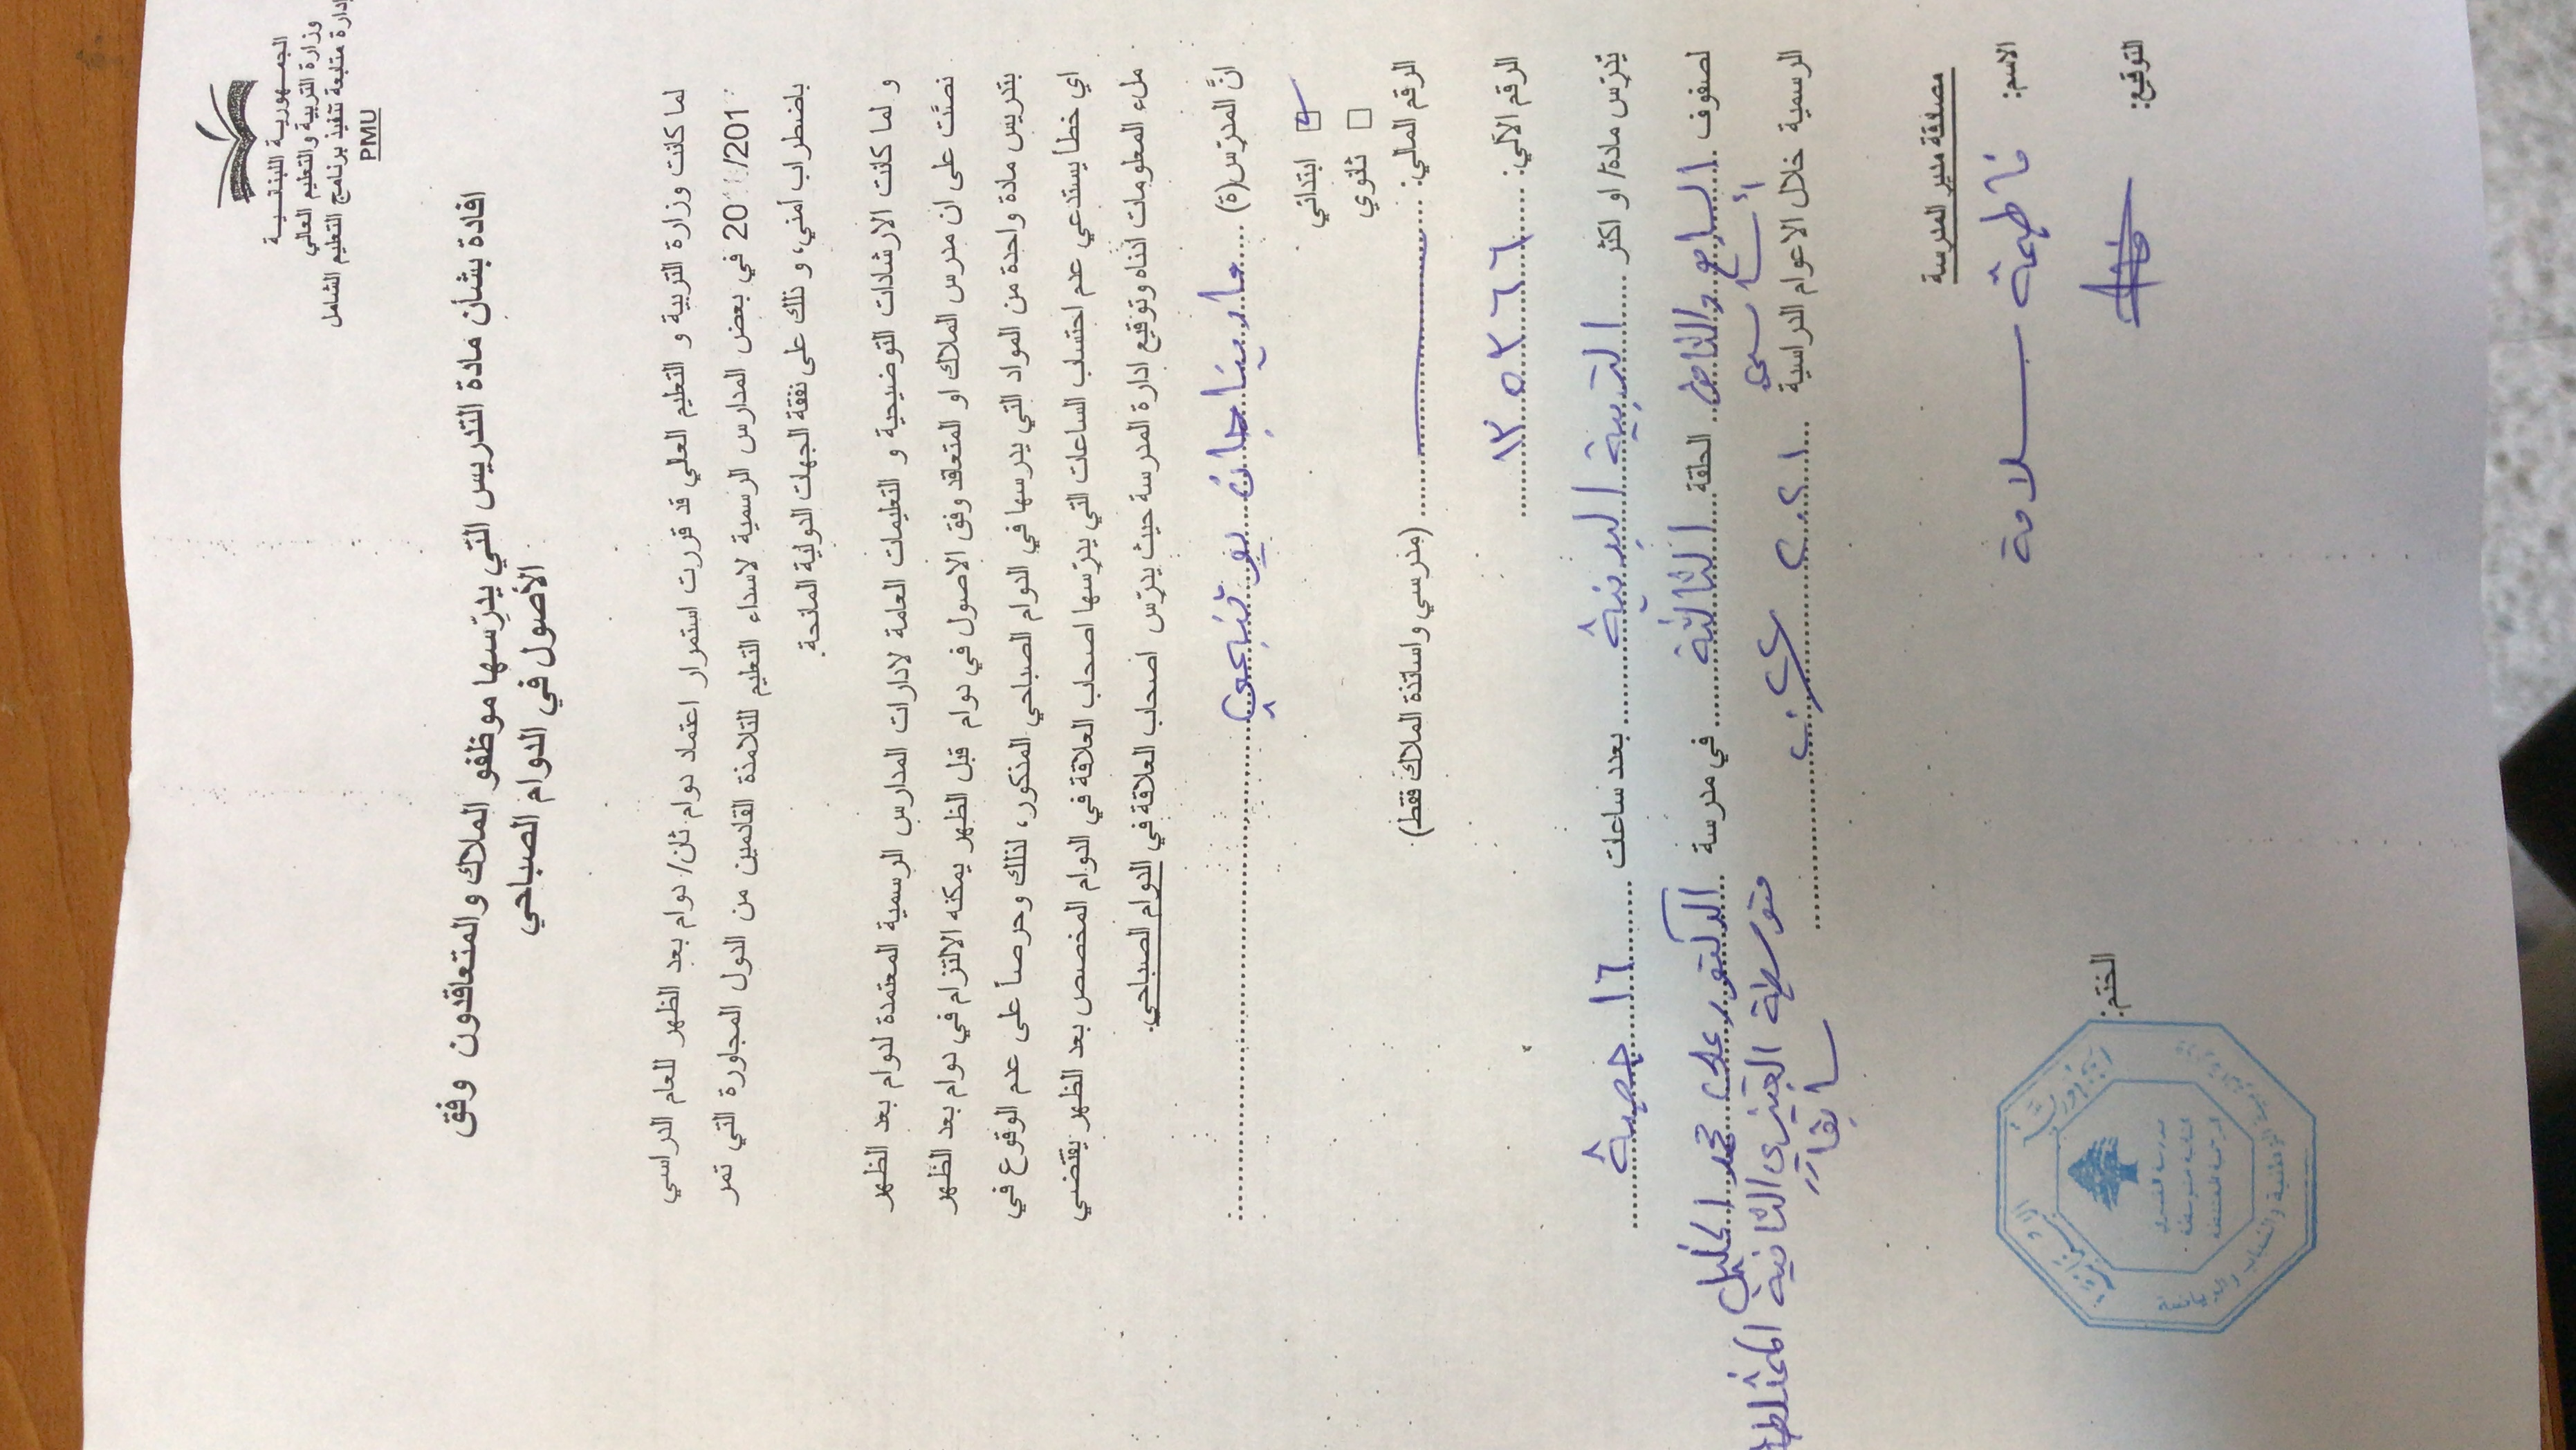 الجمهورية اللبنانية
وزارة التربية والتعليم العالي
إدارة متابعة تنفيذ برنامج التعليم الشامل
PMU
افادة بشأن مادة التدريس التي يدرّسها موظفو الملاك والمتعاقدون وفق
الأصول في الدوام الصباحي
لما كانت وزارة التربية و التعليم العالي قد قررت استمرار اعتماد دوام ثان/ دوام بعد الظهر للعام الدراسي
201 /20 في بعض المدارس الرسمية لاسداء التعليم للتلامذة القادمين من الدول المجاورة التي تمر
باضطراب أمني، و ذلك على نفقة الجهات الدولية المانحة.
و لما كانت الارشادات التوضيحية و التعليمات العامة لادارات المدارس الرسمية المعتمدة لدوام بعد الظهر
نصَّت على ان مدرس الملاك او المتعاقد وفق الاصول في دوام قبل الظهر يمكنه الالتزام في دوام بعد الظهر
بتدريس مادة واحدة من المواد التي يدرسها في الدوام الصباحي المذكور، لذلك وحرصاً على عدم الوقوع في
اي خطأ يستدعي عدم احتساب الساعات التي يدرّسها اصحاب العلاقة في الدوام المخصص بعد الظهر يقتضي
ملء المعلومات ادناه وتوقيع ادارة المدرسة حيث يدرّس اصحاب العلاقة في الدوام الصباحي.
انَّ المدرّس(ة) ..... ماريتا جان .....
ابتدائي ☑
ثانوي ☐
الرقم المالي: ............ (مدرسي واساتذة الملاك فقط)
الرقم الآلي: ..... ١٣٠٥٢٦٦ .....
يدّرس مادة/ او اكثر ..... التربية البدنية ..... بعدد ساعات ..... ١٦ حصة .....
لصفوف .السابع والثامن.. الحلقة ..الثالثة..... في مدرسة ..الدكتور علي محمد الخليل
أساسي متوسطة الغبيري الثانية المختلطة
سابقاً
الرسمية خلال الاعوام الدراسية ... ٢٠٢١ .....
مصادقة مدير المدرسة
الاسم: فاطمة سلامة
التوقيع:
الختم: